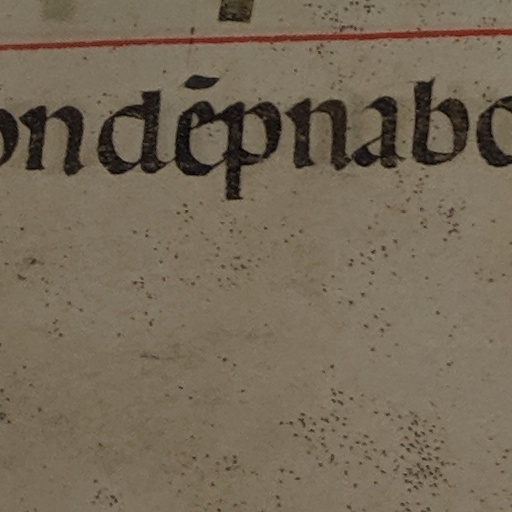 ondēpnabo